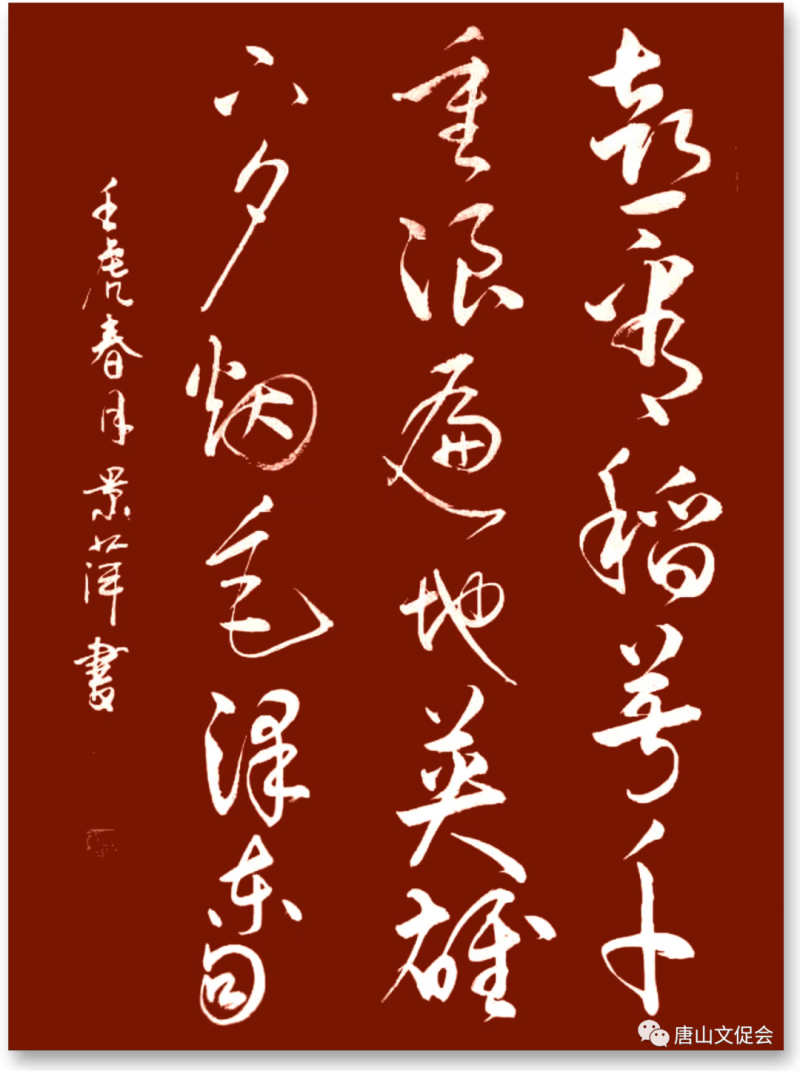 喜看稻菽千
重浪遍地英雄
下夕烟毛泽东句
壬虎春月景萍書
唐山文促会